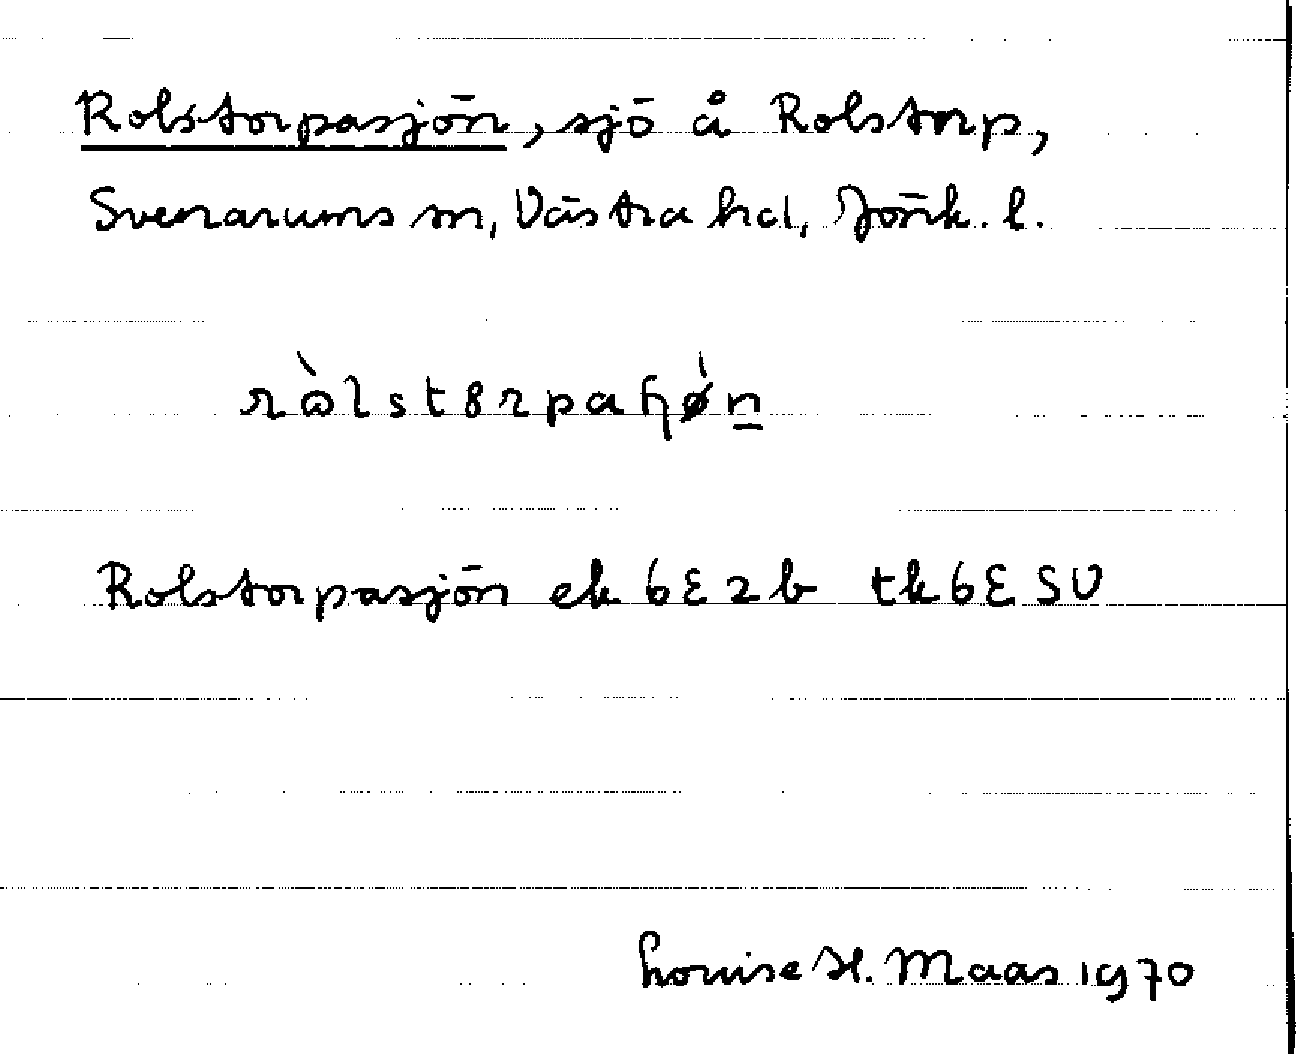 Rolstorpasjön, sjö å Rolstorp,
Svenarums sn, Västra hd, Jönk. l.
ròlstɤrpaɧǿn̲
Rolstorpasjön ek 6E2b tk6ESV
Louise H. Maas 1970